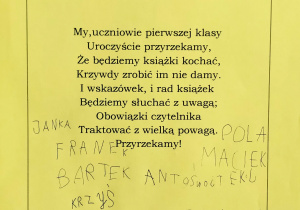 My,uczniowie pierwszej klasy
Uroczyście przyrzekamy,
Że będziemy książki kochać,
Krzywdy zrobić im nie damy.
I wskazówek, i rad książek
Będziemy słuchać z uwagą;
Obowiązki czytelnika
Traktować z wielką powagą.
Przyrzekamy!
JANKA
POLA
FRANEK
MACIEK
BARTEK
KRZYŚ